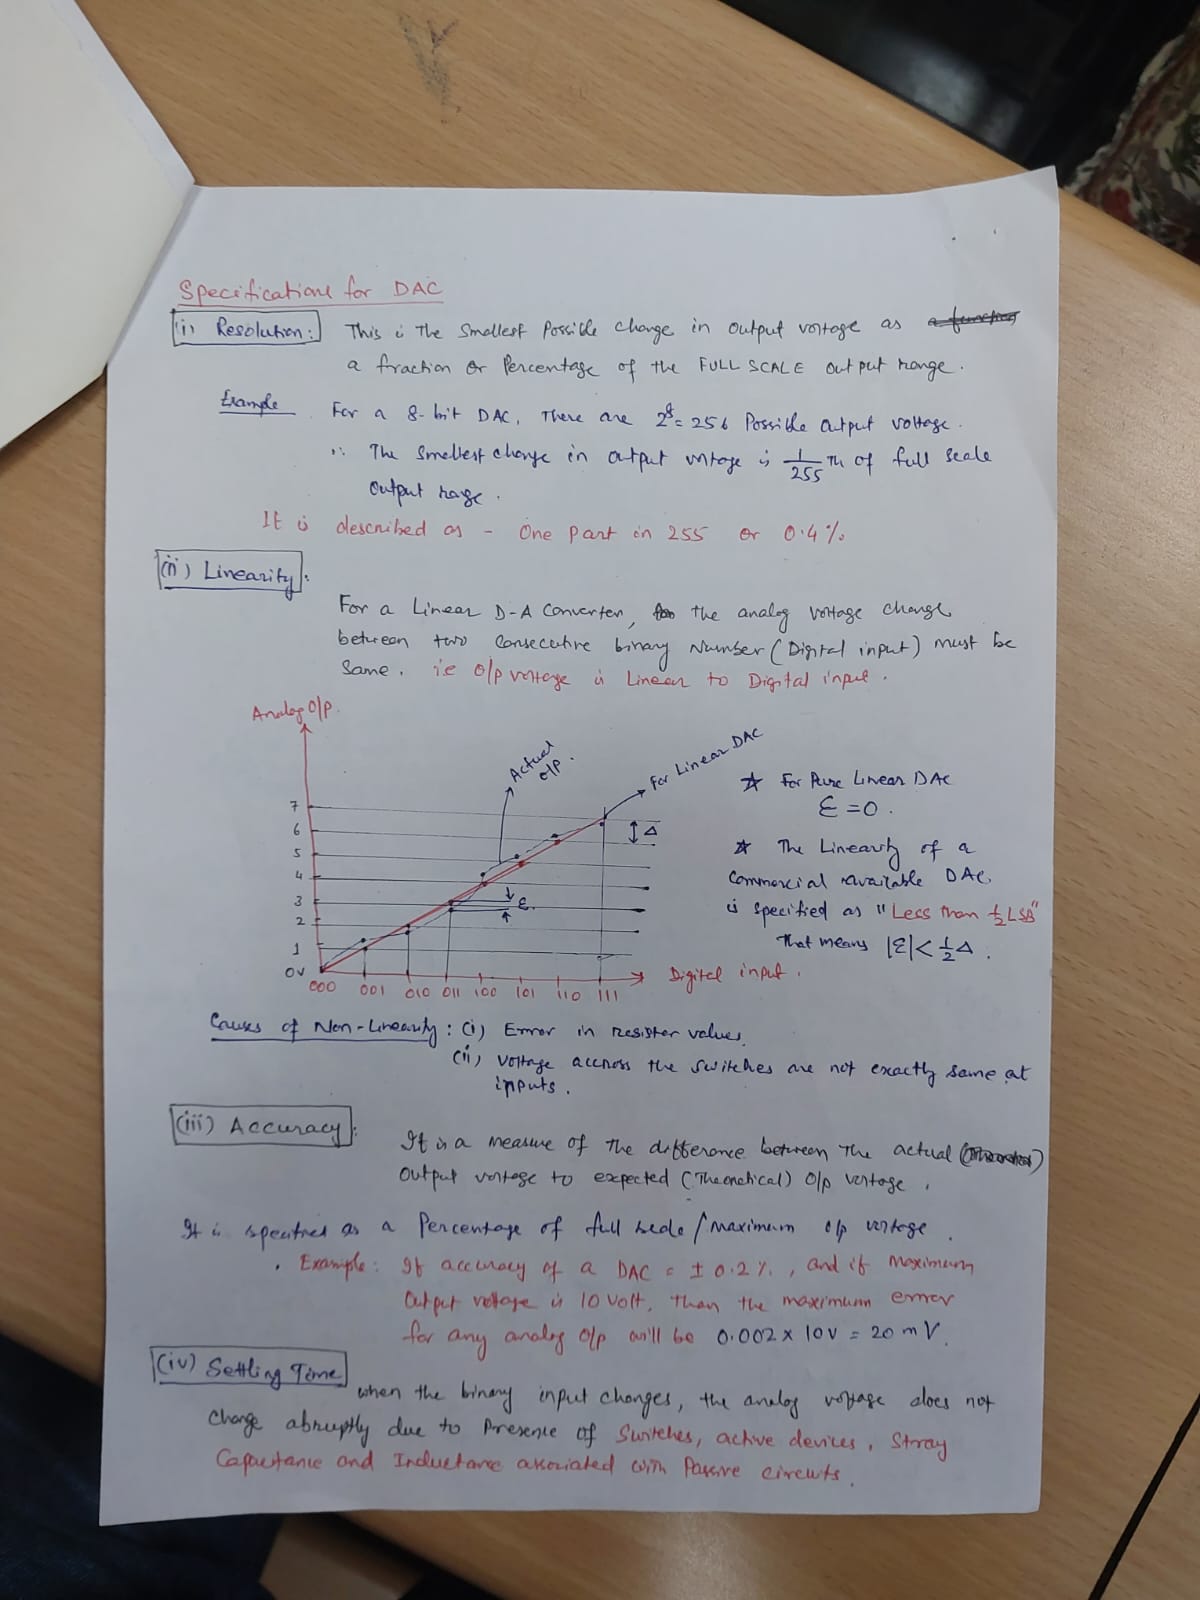 Specifications for DAC
(i) Resolution: This is The Smallest Possible change in output voltage as
a fraction or Percentage of the FULL SCALE output range.
Example For a 8-bit DAC, There are 2⁸=256 Possible output voltage.
∴ The smallest change in output voltage is 1/255 Th of full scale
output range.
It is described as - One part in 255 or 0.4%
(ii) Linearity:
For a Linear D-A Converter, the analog voltage change
between two consecutive binary Number (Digital input) must be
Same. i.e o/p voltage is Linear to Digital input.
Analog O/p.
Actual o/p.
For Linear DAC
7
6
5
4
3
2
1
0V
Δ
ε
000 001 010 011 100 101 110 111
Digital input.
☆ For Pure Linear DAC
ε = 0.
☆ The Linearity of a
commercial available DAC.
is specified as "Less than ½ LSB"
That means |ε| < ½ Δ.
Causes of Non-Linearity: (i) Error in resistor values.
(ii) voltage accross the switches are not exactly same at
inputs.
(iii) Accuracy:
It is a measure of the difference between The actual
output voltage to expected (Theoretical) O/p voltage.
It is specified as a Percentage of full scale / maximum o/p voltage.
Example: If accuracy of a DAC = ± 0.2%, and if maximum
Output voltage is 10 Volt, Then the maximum error
for any analog o/p will be 0.002 x 10V = 20 mV.
(iv) Settling Time
when the binary input changes, the analog voltage does not
change abruptly due to Presence of Switches, active devices, Stray
Capacitance and Inductance associated with Passive circuits.